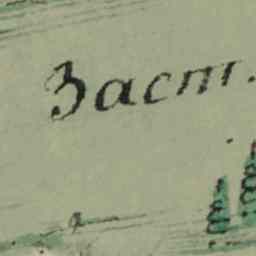 Заст.